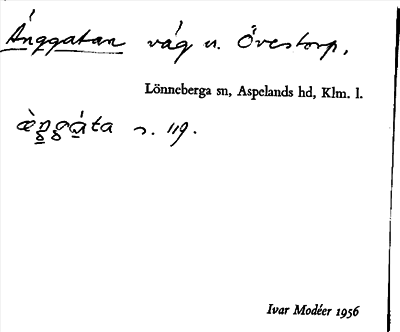 Änggatan väg u. Övestorp.
Lönneberga sn, Aspelands hd, Klm. l.
s. 119.
Ivar Modéer 1956